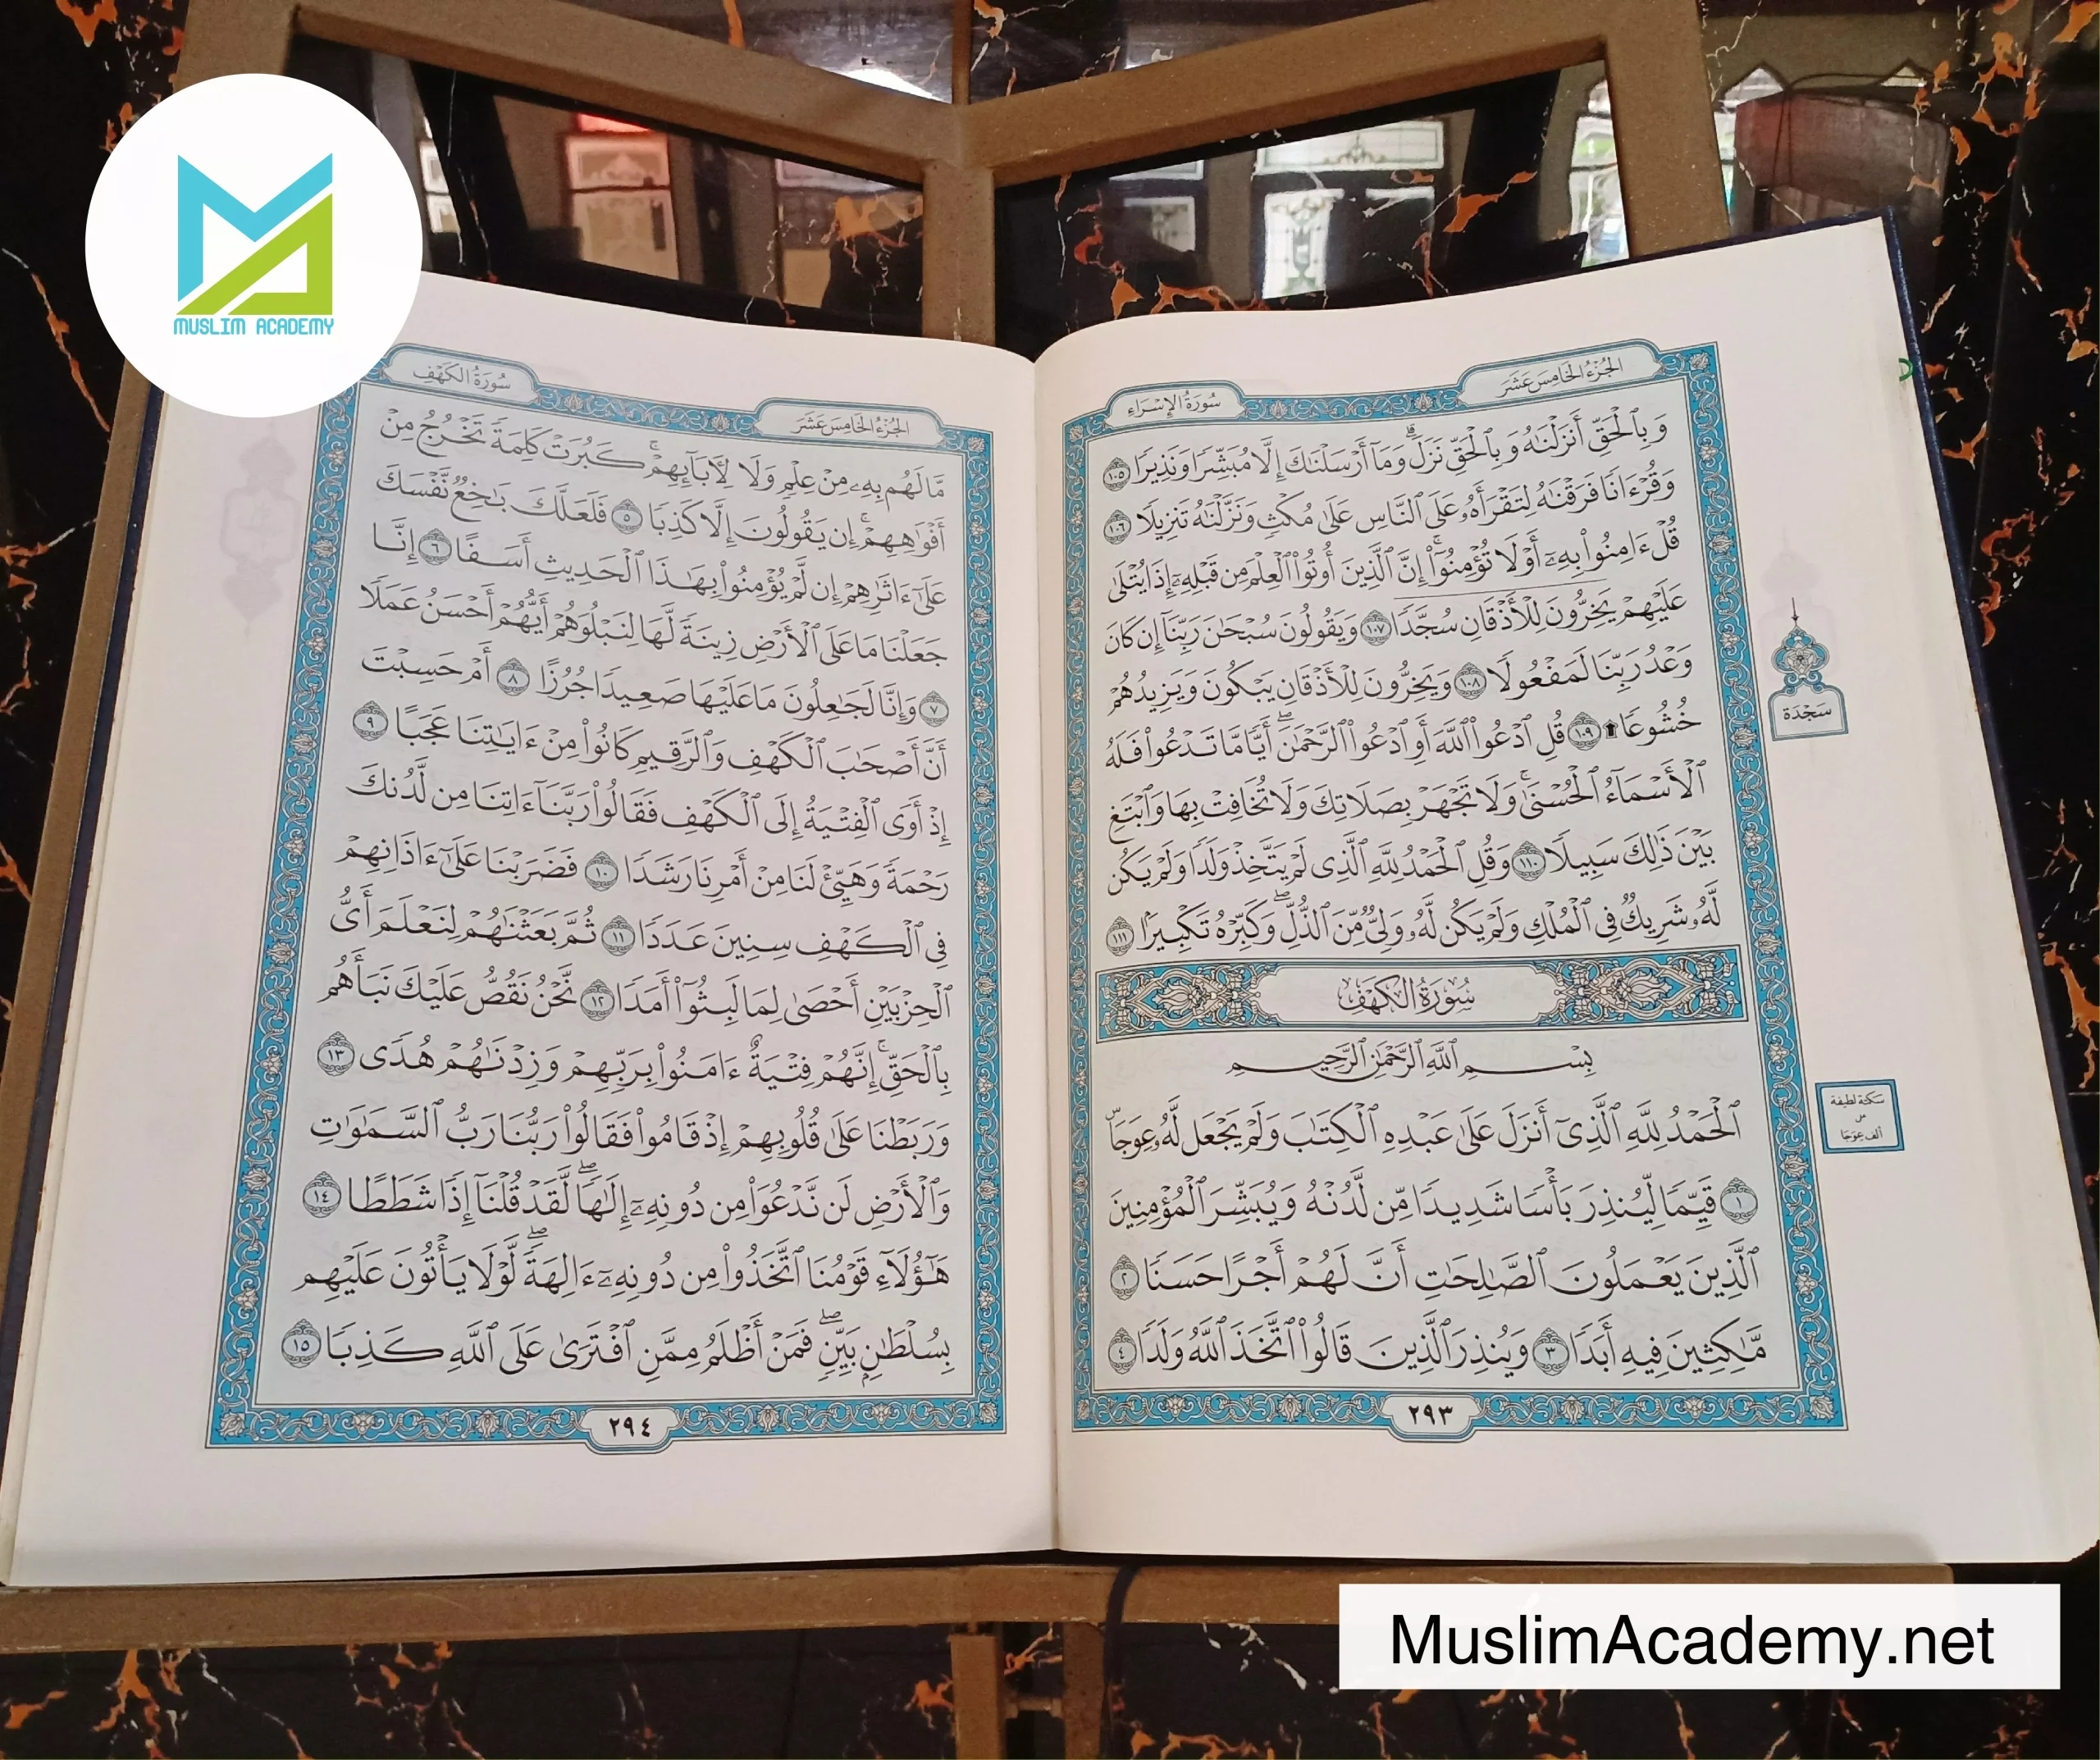 MUSLIM ACADEMY
الجُزْءُ الخَامِسَ عَشَرَ
سُورَةُ الإِسْرَاءِ
وَبِٱلْحَقِّ أَنزَلْنَٰهُ وَبِٱلْحَقِّ نَزَلَ ۗ وَمَآ أَرْسَلْنَٰكَ إِلَّا مُبَشِّرًا وَنَذِيرًا ١٠٥
وَقُرْءَانًا فَرَقْنَٰهُ لِتَقْرَأَهُۥ عَلَى ٱلنَّاسِ عَلَىٰ مُكْثٍ وَنَزَّلْنَٰهُ تَنزِيلًا ١٠٦
قُلْ ءَامِنُوا۟ بِهِۦٓ أَوْ لَا تُؤْمِنُوٓا۟ ۚ إِنَّ ٱلَّذِينَ أُوتُوا۟ ٱلْعِلْمَ مِن قَبْلِهِۦٓ إِذَا يُتْلَىٰ
عَلَيْهِمْ يَخِرُّونَ لِلْأَذْقَانِ سُجَّدًا ١٠٧ وَيَقُولُونَ سُبْحَٰنَ رَبِّنَآ إِن كَانَ
وَعْدُ رَبِّنَا لَمَفْعُولًا ١٠٨ وَيَخِرُّونَ لِلْأَذْقَانِ يَبْكُونَ وَيَزِيدُهُمْ
خُشُوعًا ۩ ١٠٩ قُلِ ٱدْعُوا۟ ٱللَّهَ أَوِ ٱدْعُوا۟ ٱلرَّحْمَٰنَ ۖ أَيًّا مَّا تَدْعُوا۟ فَلَهُ
ٱلْأَسْمَآءُ ٱلْحُسْنَىٰ ۚ وَلَا تَجْهَرْ بِصَلَاتِكَ وَلَا تُخَافِتْ بِهَا وَٱبْتَغِ
بَيْنَ ذَٰلِكَ سَبِيلًا ١١٠ وَقُلِ ٱلْحَمْدُ لِلَّهِ ٱلَّذِى لَمْ يَتَّخِذْ وَلَدًا وَلَمْ يَكُن
لَّهُۥ شَرِيكٌ فِى ٱلْمُلْكِ وَلَمْ يَكُن لَّهُۥ وَلِىٌّ مِّنَ ٱلذُّلِّ ۖ وَكَبِّرْهُ تَكْبِيرًۢا ١١١
سُورَةُ الكَهْفِ
بِسْمِ ٱللَّهِ ٱلرَّحْمَٰنِ ٱلرَّحِيمِ
ٱلْحَمْدُ لِلَّهِ ٱلَّذِىٓ أَنزَلَ عَلَىٰ عَبْدِهِ ٱلْكِتَٰبَ وَلَمْ يَجْعَل لَّهُۥ عِوَجَاۜ
١ قَيِّمًا لِّيُنذِرَ بَأْسًا شَدِيدًا مِّن لَّدُنْهُ وَيُبَشِّرَ ٱلْمُؤْمِنِينَ
ٱلَّذِينَ يَعْمَلُونَ ٱلصَّٰلِحَٰتِ أَنَّ لَهُمْ أَجْرًا حَسَنًا ٢
مَّٰكِثِينَ فِيهِ أَبَدًا ٣ وَيُنذِرَ ٱلَّذِينَ قَالُوا۟ ٱتَّخَذَ ٱللَّهُ وَلَدًا ٤
٢٩٣
سَجْدَة
سكتة لطيفة
على
ألف عِوَجَا
الجُزْءُ الخَامِسَ عَشَرَ
سُورَةُ الكَهْفِ
مَّا لَهُم بِهِۦ مِنْ عِلْمٍ وَلَا لِـَٔابَآئِهِمْ ۚ كَبُرَتْ كَلِمَةً تَخْرُجُ مِنْ
أَفْوَٰهِهِمْ ۚ إِن يَقُولُونَ إِلَّا كَذِبًا ٥ فَلَعَلَّكَ بَٰخِعٌ نَّفْسَكَ
عَلَىٰٓ ءَاثَٰرِهِمْ إِن لَّمْ يُؤْمِنُوا۟ بِهَٰذَا ٱلْحَدِيثِ أَسَفًا ٦ إِنَّا
جَعَلْنَا مَا عَلَى ٱلْأَرْضِ زِينَةً لَّهَا لِنَبْلُوَهُمْ أَيُّهُمْ أَحْسَنُ عَمَلًا
٧ وَإِنَّا لَجَٰعِلُونَ مَا عَلَيْهَا صَعِيدًا جُرُزًا ٨ أَمْ حَسِبْتَ
أَنَّ أَصْحَٰبَ ٱلْكَهْفِ وَٱلرَّقِيمِ كَانُوا۟ مِنْ ءَايَٰتِنَا عَجَبًا ٩
إِذْ أَوَى ٱلْفِتْيَةُ إِلَى ٱلْكَهْفِ فَقَالُوا۟ رَبَّنَآ ءَاتِنَا مِن لَّدُنكَ
رَحْمَةً وَهَيِّئْ لَنَا مِنْ أَمْرِنَا رَشَدًا ١٠ فَضَرَبْنَا عَلَىٰٓ ءَاذَانِهِمْ
فِى ٱلْكَهْفِ سِنِينَ عَدَدًا ١١ ثُمَّ بَعَثْنَٰهُمْ لِنَعْلَمَ أَىُّ
ٱلْحِزْبَيْنِ أَحْصَىٰ لِمَا لَبِثُوٓا۟ أَمَدًا ١٢ نَّحْنُ نَقُصُّ عَلَيْكَ نَبَأَهُم
بِٱلْحَقِّ ۚ إِنَّهُمْ فِتْيَةٌ ءَامَنُوا۟ بِرَبِّهِمْ وَزِدْنَٰهُمْ هُدًى ١٣
وَرَبَطْنَا عَلَىٰ قُلُوبِهِمْ إِذْ قَامُوا۟ فَقَالُوا۟ رَبُّنَا رَبُّ ٱلسَّمَٰوَٰتِ
وَٱلْأَرْضِ لَن نَّدْعُوَا۟ مِن دُونِهِۦٓ إِلَٰهًا ۖ لَّقَدْ قُلْنَآ إِذًا شَطَطًا ١٤
هَٰٓؤُلَآءِ قَوْمُنَا ٱتَّخَذُوا۟ مِن دُونِهِۦٓ ءَالِهَةً ۖ لَّوْلَا يَأْتُونَ عَلَيْهِم
بِسُلْطَٰنٍۭ بَيِّنٍ ۖ فَمَنْ أَظْلَمُ مِمَّنِ ٱفْتَرَىٰ عَلَى ٱللَّهِ كَذِبًا ١٥
٢٩٤
MuslimAcademy.net